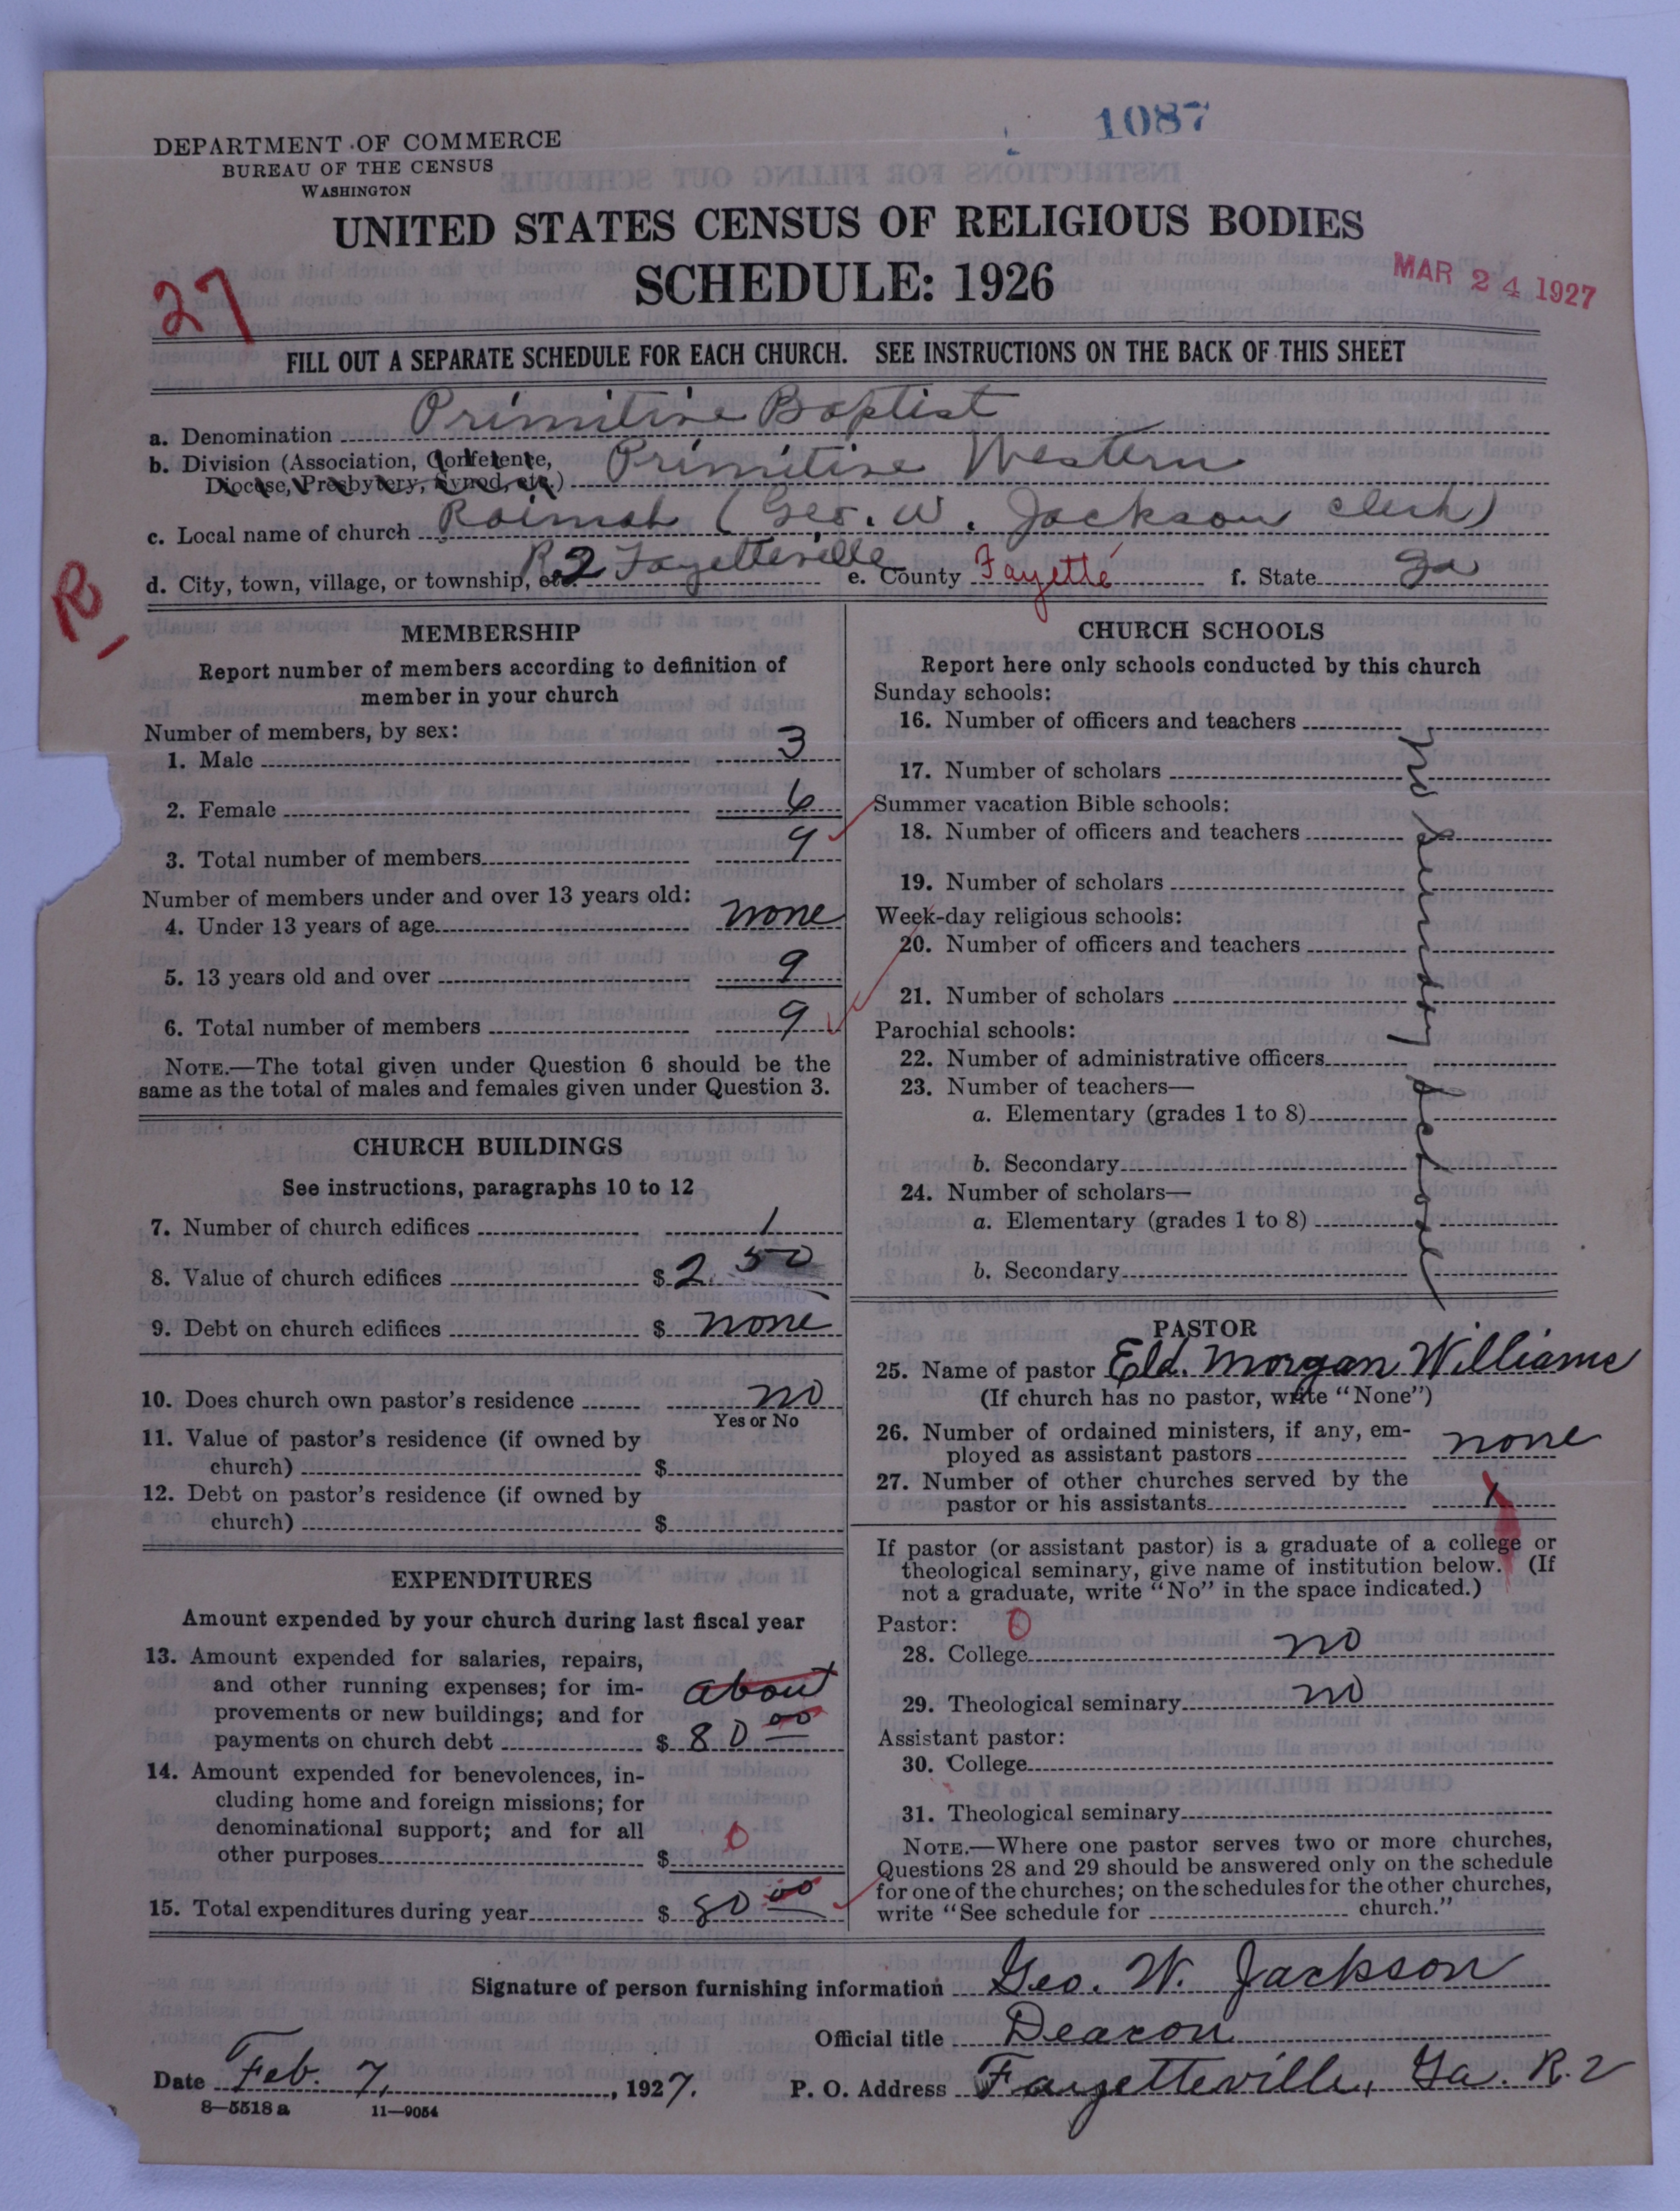 1087
DEPARTMENT OF COMMERCE
BUREAU OF THE CENSUS
WASHINGTON
UNITED STATES CENSUS OF RELIGIOUS BODIES
SCHEDULE: 1926
MAR 24 1927
27
FILL OUT A SEPARATE SCHEDULE FOR EACH CHURCH. SEE INSTRUCTIONS ON THE BACK OF THIS SHEET
a. Denomination Primitive Baptist
b. Division (Association, Conference, Diocese, Presbytery, Synod, etc.) Primitive Western
c. Local name of church (Geo. W. Jackson clerk)
d. City, town, village, or township, etc. R.2 Fayetteville e. County Fayette f. State Ga
R
MEMBERSHIP
Report number of members according to definition of
member in your church
Number of members, by sex:
1. Male 3
2. Female 6
3. Total number of members 9
Number of members under and over 13 years old:
4. Under 13 years of age none
5. 13 years old and over 9
6. Total number of members 9
NOTE.—The total given under Question 6 should be the
same as the total of males and females given under Question 3.
CHURCH BUILDINGS
See instructions, paragraphs 10 to 12
7. Number of church edifices 1
8. Value of church edifices $ 2 50
9. Debt on church edifices $ none
10. Does church own pastor's residence no
Yes or No
11. Value of pastor's residence (if owned by
church) $
12. Debt on pastor's residence (if owned by
church) $
EXPENDITURES
Amount expended by your church during last fiscal year
13. Amount expended for salaries, repairs,
and other running expenses; for im- about
provements or new buildings; and for
payments on church debt $ 80 00
14. Amount expended for benevolences, in-
cluding home and foreign missions; for
denominational support; and for all
other purposes $ 0
15. Total expenditures during year $ 80 00
CHURCH SCHOOLS
Report here only schools conducted by this church
Sunday schools:
16. Number of officers and teachers
17. Number of scholars
Summer vacation Bible schools:
18. Number of officers and teachers
19. Number of scholars
Week-day religious schools:
20. Number of officers and teachers
21. Number of scholars
Parochial schools:
22. Number of administrative officers
23. Number of teachers—
a. Elementary (grades 1 to 8)
b. Secondary
24. Number of scholars—
a. Elementary (grades 1 to 8)
b. Secondary
no Sunday School
PASTOR
25. Name of pastor Eld. Morgan Williams
(If church has no pastor, write "None")
26. Number of ordained ministers, if any, em-
ployed as assistant pastors none
27. Number of other churches served by the
pastor or his assistants 1
If pastor (or assistant pastor) is a graduate of a college or
theological seminary, give name of institution below. (If
not a graduate, write "No" in the space indicated.)
Pastor: 0
28. College no
29. Theological seminary no
Assistant pastor:
30. College
31. Theological seminary
NOTE.—Where one pastor serves two or more churches,
Questions 28 and 29 should be answered only on the schedule
for one of the churches; on the schedules for the other churches,
write "See schedule for church."
Signature of person furnishing information Geo. W. Jackson
Official title Deacon
Date Feb. 7, 1927. P. O. Address Fayetteville, Ga. R. 2
8—5518 a 11—9054